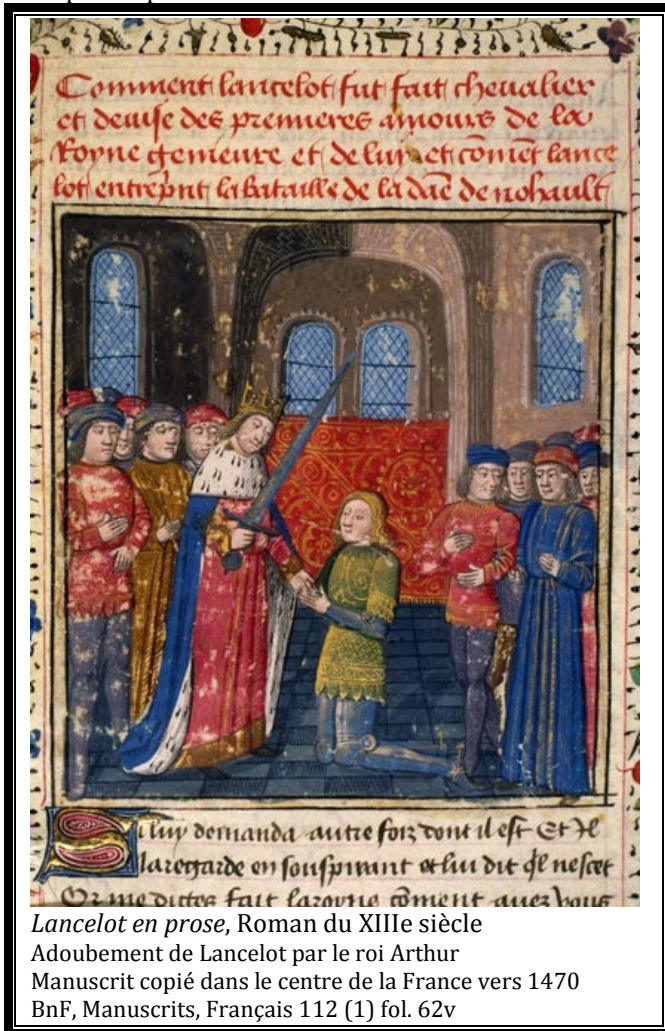 Comment lancelot fut fait chevalier
et devise des premieres amours de la
Royne genieure et de luy et cõmẽt lance
lot entrepnt la bataille de la daẽ de nohault
Si luy demanda autre foiz dont il est Et Il
la regarde en souspirant et lui dit ql ne scet
Or me dictes fait la royne cõment avez vous
Lancelot en prose, Roman du XIIIe siècle
Adoubement de Lancelot par le roi Arthur
Manuscrit copié dans le centre de la France vers 1470
BnF, Manuscrits, Français 112 (1) fol. 62v